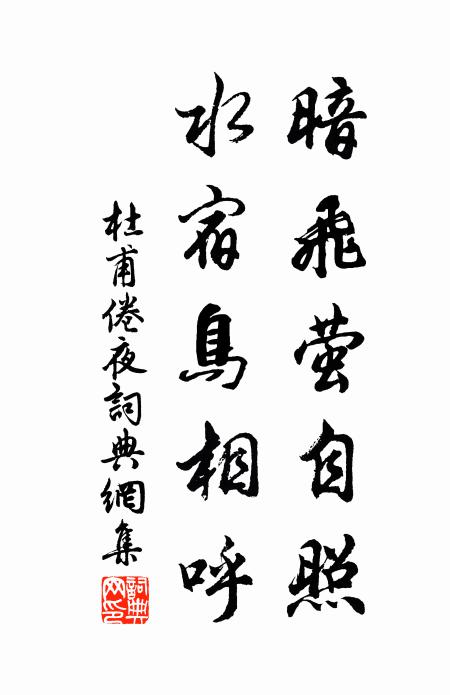 暗飛螢自照
水宿鳥相呼
杜甫倦夜詞典網集